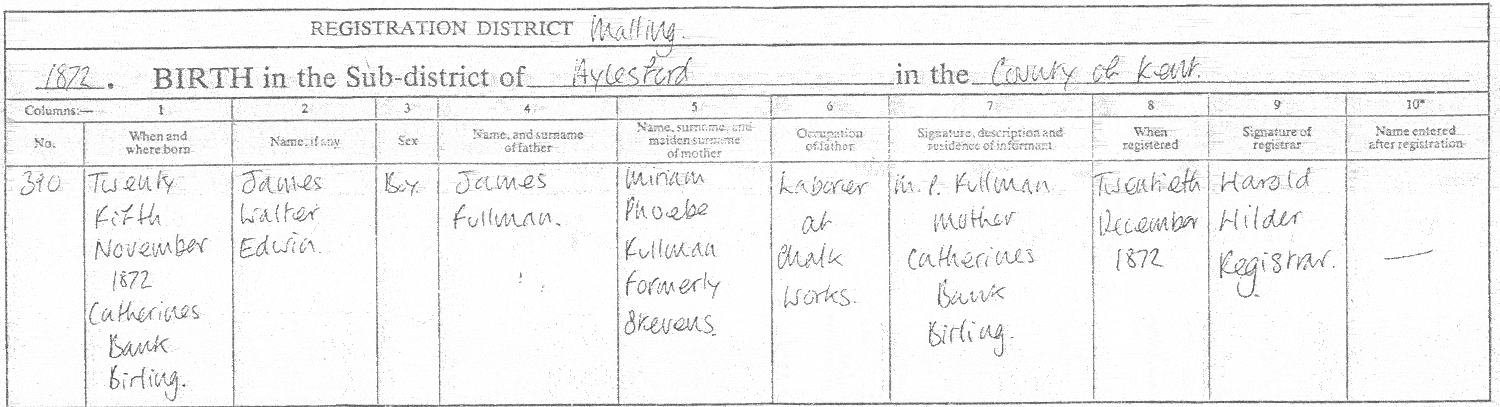 REGISTRATION DISTRICT Malling.
1872. BIRTH in the Sub-district of Aylesford in the County of Kent.
Columns:— 1 2 3 4 5 6 7 8 9 10*
No.
When and
where born
Name, if any
Sex
Name, and surname
of father
Name, surname, and
maiden surname
of mother
Occupation
of father
Signature, description and
residence of informant
When
registered
Signature of
registrar
Name entered
after registration
390
Twenty
Fifth
November
1872
Catherines
Bank
Birling.
James
Walter
Edwin.
Boy.
James
Fullman.
Miriam
Phoebe
Fullman
Formerly
Skevens.
Laborer
at
Chalk
Works.
M. P. Fullman
Mother
Catherines
Bank
Birling.
Twentieth
December
1872
Harold
Hilder
Registrar.
—